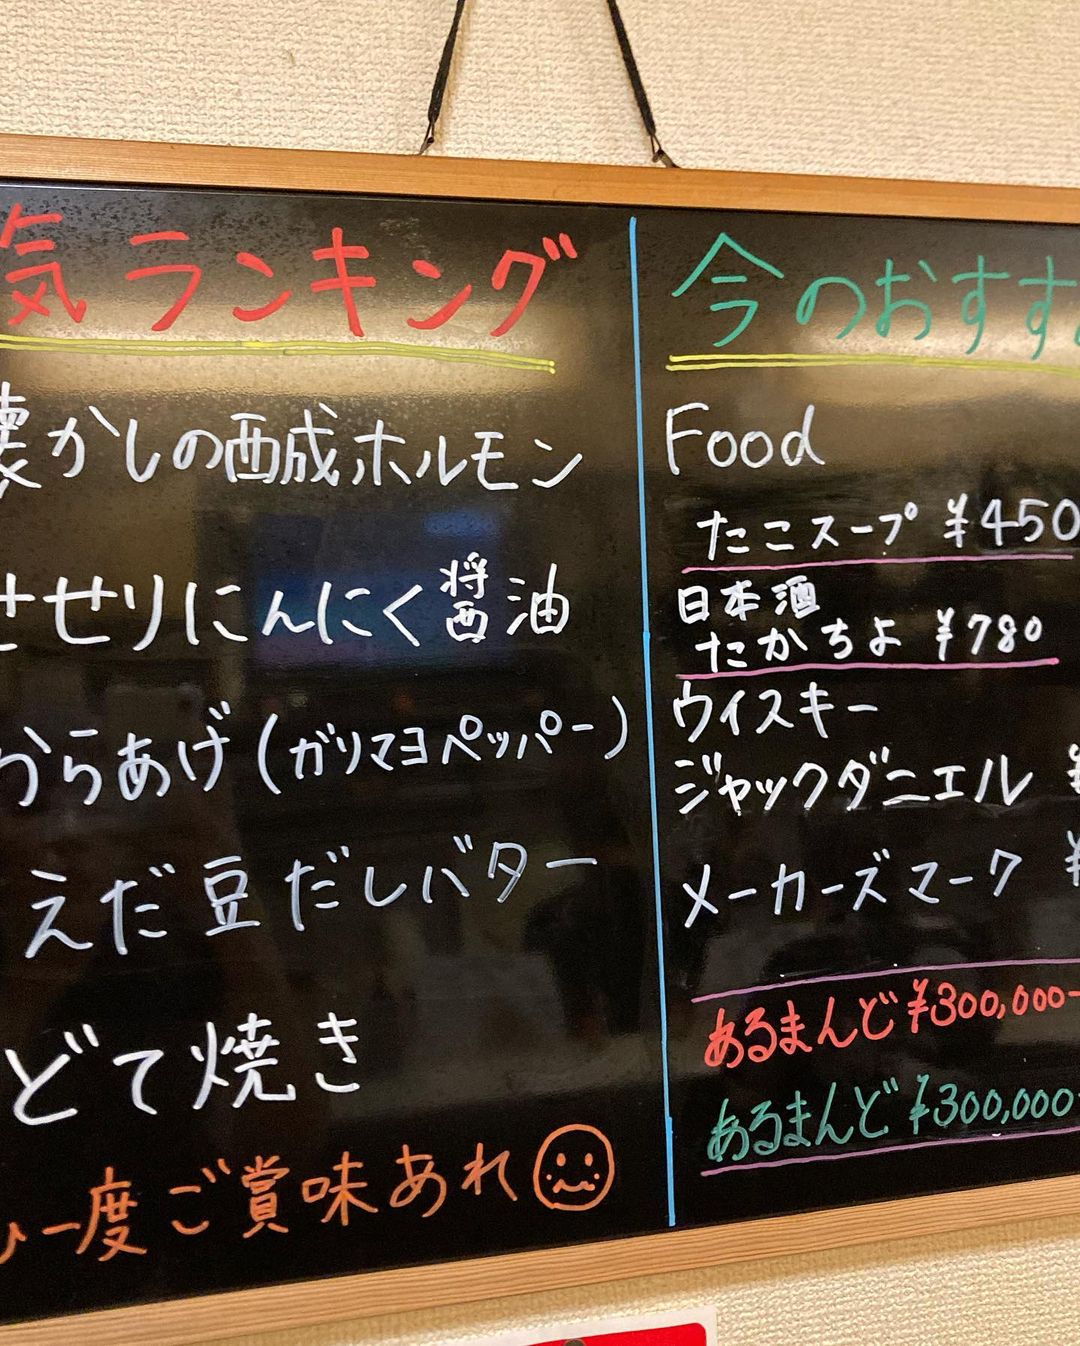 気ランキング
懐かしの西成ホルモン
せせりにんにく醤油
からあげ(ガリマヨペッパー)
えだ豆だしバター
どて焼き
一度ご賞味あれ
今のおすす
Food
たこスープ ¥450
日本酒
たかちよ ¥780
ウイスキー
ジャックダニエル ¥
メーカーズマーク ¥
あるまんど ¥300,000-
あるまんど ¥300,000-